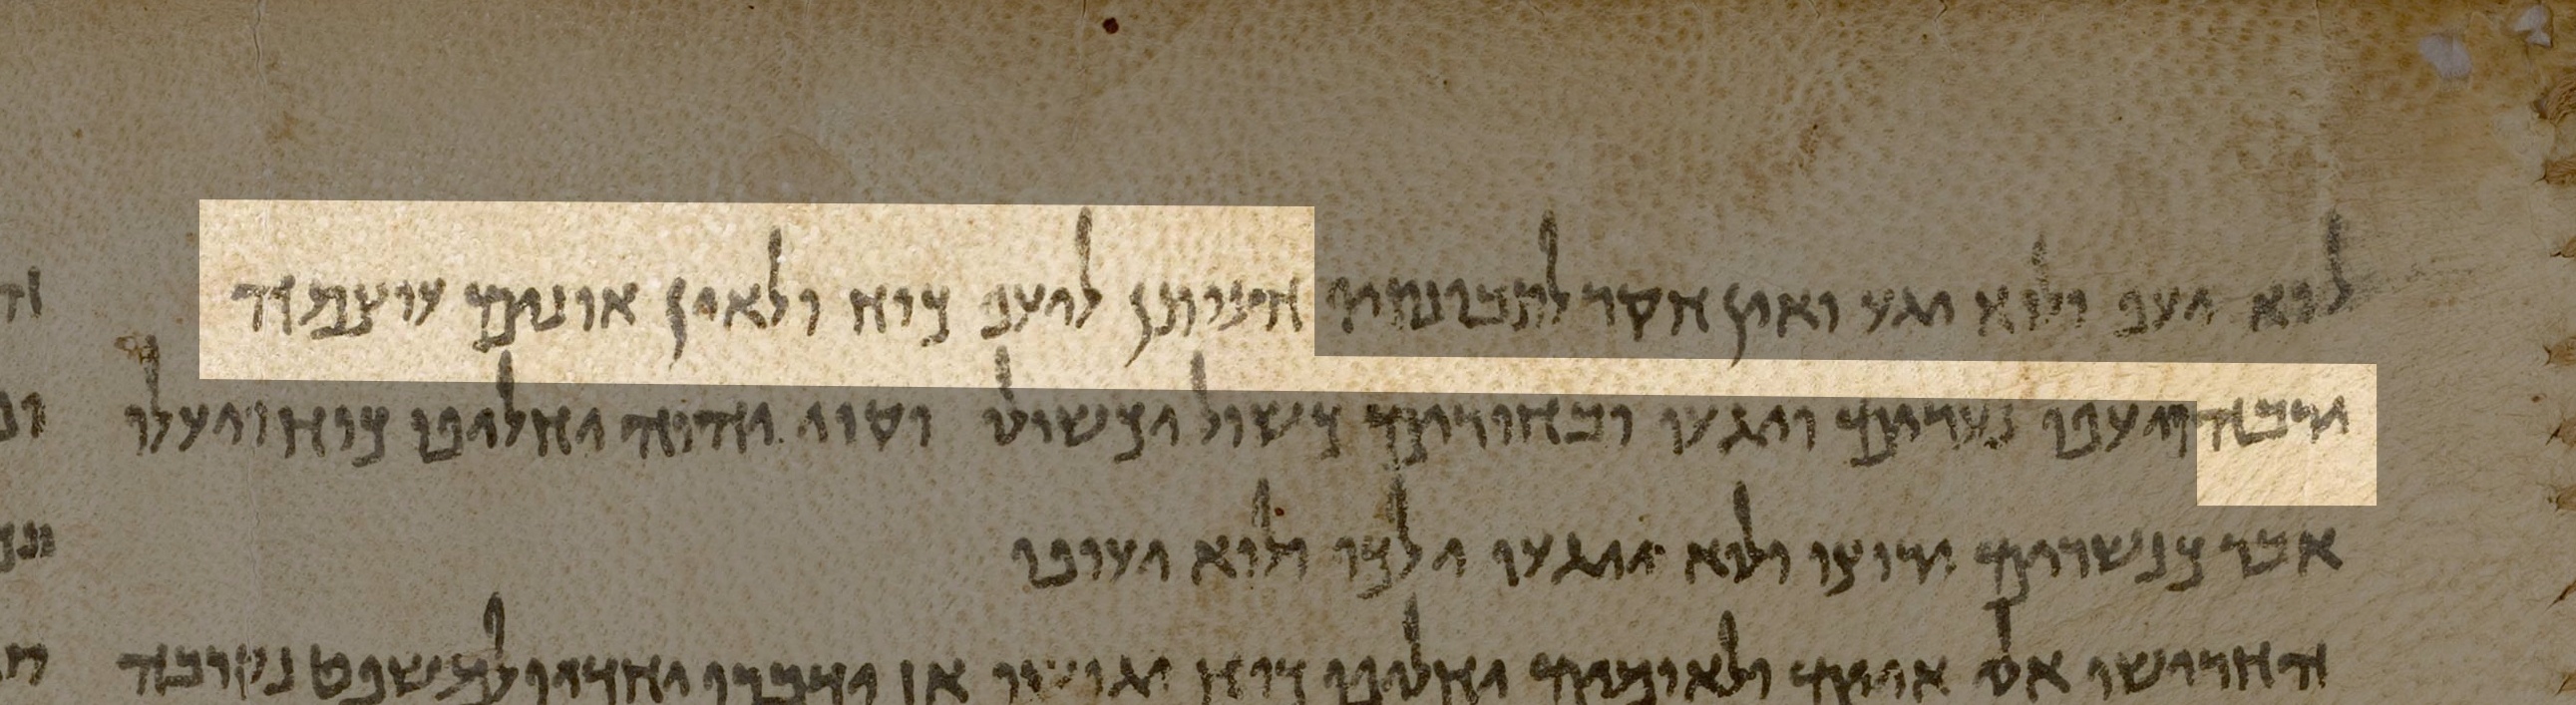 לוא יעף ולוא יגע ואין חקר לתבונתו הנותן ליעף כוח ולאין אונים עוצמה
ירבה ויעפו נערים ויגעו ובחורים כשול יכשולו וקוי יהוה יחליפו כוח ויעלו
אבר כנשרים ירוצו ולוא יגעו ילכו ולוא יעופו
החרישו אלי איים ולאומים יחליפו כוח יגישו אז ידברו יחדיו למשפט נקרבה